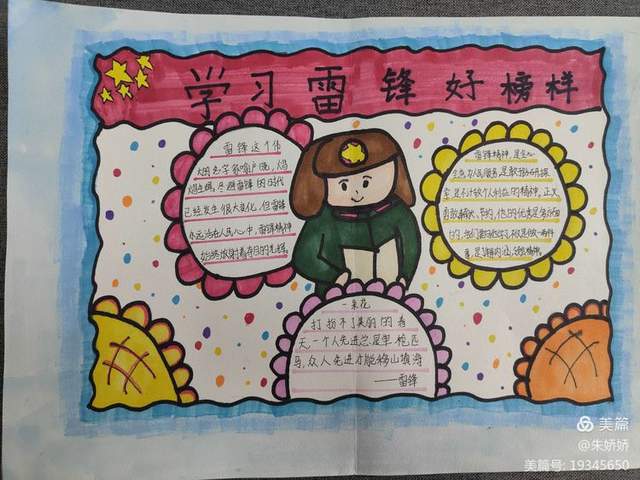 学习雷锋好榜样
雷锋这个伟
大的名字家喻户晓，焰
焰生辉，尽避雷锋的时代
已经发生很大变化，但雷锋
永远活在人民心中，雷锋精神
始终放射着夺目的光辉。
雷锋精神，是全心
全意为人民服务，是
是不计较个人利益的精神，正义
勇敢
的，
一朵花
打扮不了美丽的春
天，一个人先进总是单枪匹
马，众人先进才能移山填海
——雷锋
美篇
@朱娇娇
美篇号: 19345650